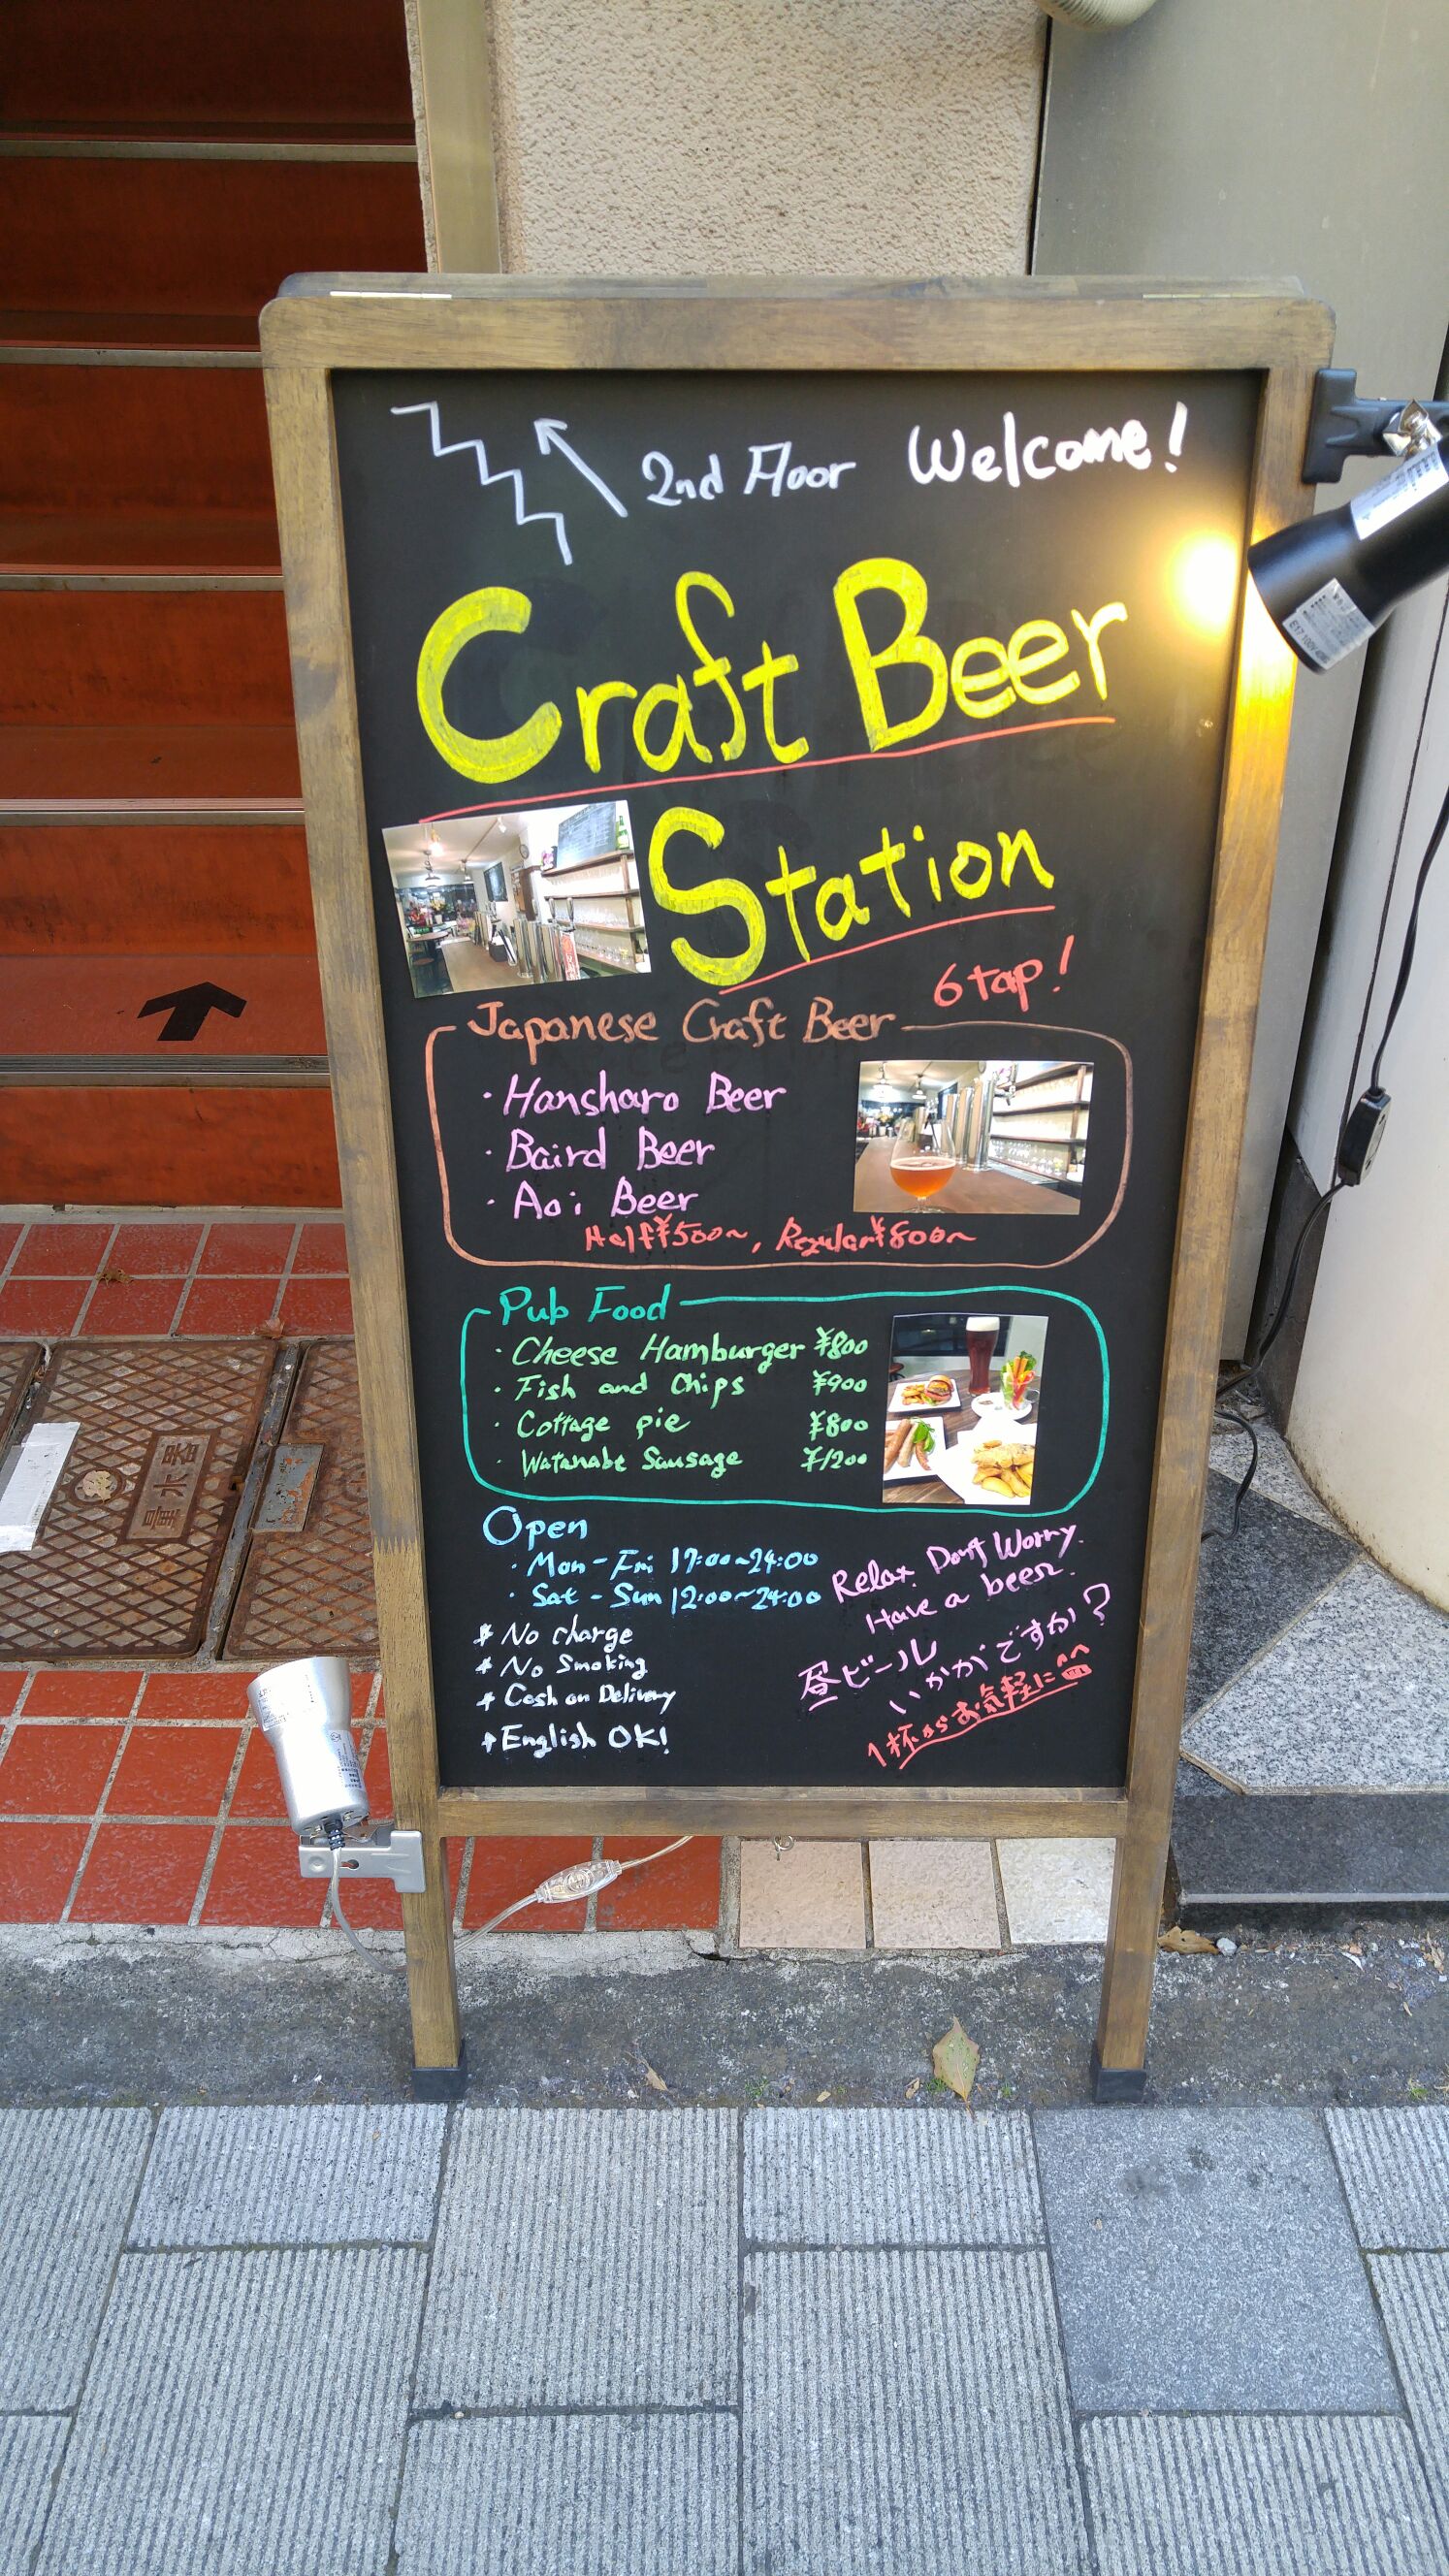 2nd Floor Welcome!
Craft Beer
Station
6 tap!
Japanese Craft Beer
・Hansharo Beer
・Baird Beer
・Aoi Beer
Half¥500~, Regular¥800~
Pub Food
・Cheese Hamburger ¥800
・Fish and Chips ¥900
・Cottage pie ¥800
・Watanabe Sausage ¥1200
Open
・Mon - Fri 17:00~24:00
・Sat - Sun 12:00~24:00
* No charge
* No Smoking
* Cash on Delivery
* English OK!
Relax. Don't Worry.
Have a beer.
昼ビール
いかがですか?
1杯からお気軽に^^
量水器
E17 100V